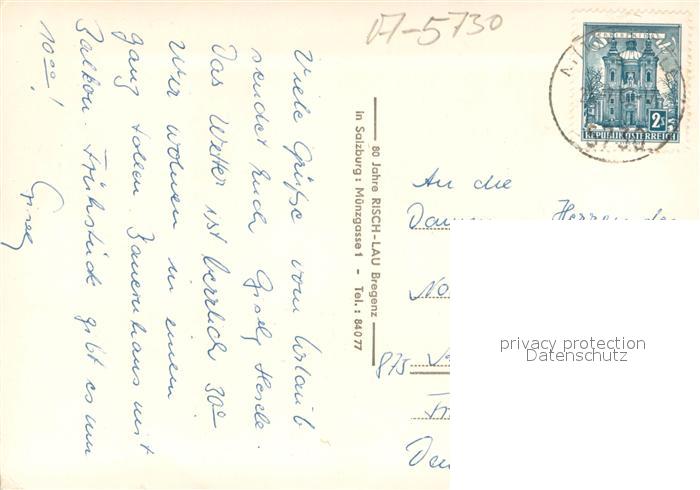 A-5730
Viele Grüße vom Urlaub
sendet Euch Gisela
Das Wetter ist herrlich 30°
Wir wohnen in einem
ganz tollen Bauernhaus mit
Balkon. Frühstück gibt es um
10°°!
80 Jahre RISCH-LAU Bregenz
in Salzburg: Münzgasse 1 - Tel.: 84077
CHRISTKINDL
2S
REPUBLIK ÖSTERREICH
An die
Damen Herren der
No
875
privacy protection
Datenschutz